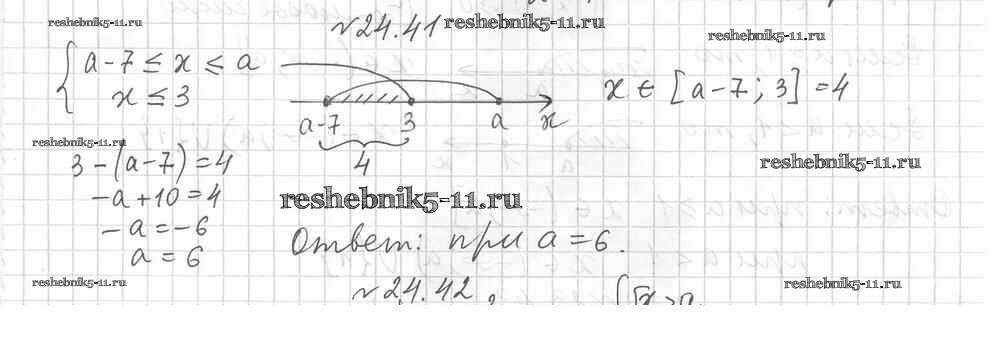 №24.41
reshebnik5-11.ru
reshebnik5-11.ru
reshebnik5-11.ru
a-7 ≤ x ≤ a
x ≤ 3
a-7 3 a x
4
x ∈ [a-7; 3] = 4
reshebnik5-11.ru
reshebnik5-11.ru
3-(a-7)=4
-a+10=4
-a=-6
a=6
reshebnik5-11.ru
Ответ: при a=6.
reshebnik5-11.ru
reshebnik5-11.ru
№24.42